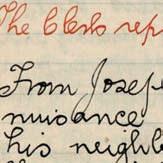 The Clerk rep
From Josep
nuisance
his neighb